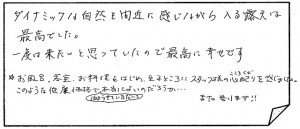 ダイナミックな自然を間近に感じながら入る露天は
最高でした。
一度は来たいと思っていたので最高に幸せです
※お風呂、客室、お料理をはじめ、至るところにスタッフ様の心配りを感じました。
このような低廉価格で本当にいいのだろうか…
また参ります!!